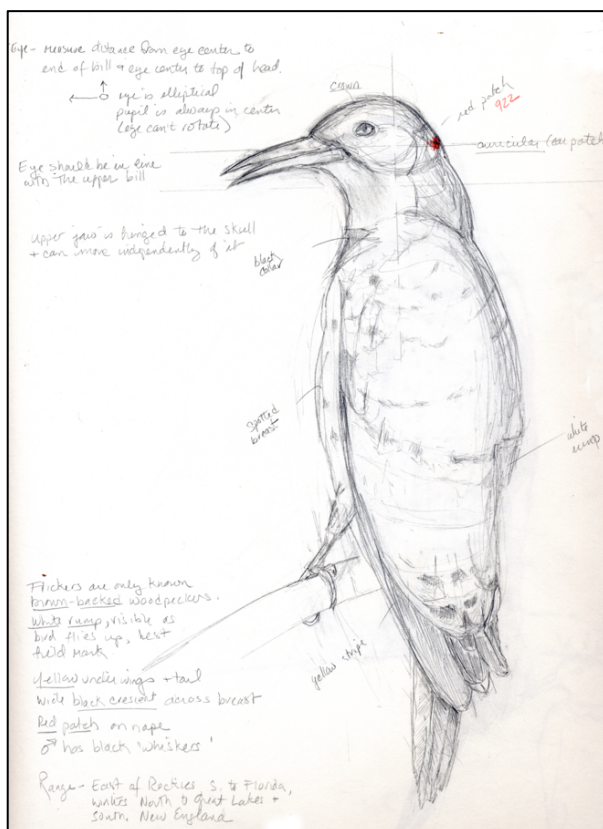 Eye - Measure distance from eye center to
end of bill + eye center to top of head.
eye is elliptical
pupil is always in center
(eye can't rotate)
Eye should be in line
with the upper bill
upper jaw is hinged to the skull
+ can move independently of it
crown
red patch
922
auricular (ear patch
black
collar
spotted
breast
white
rump
yellow stripe
Flickers are only known
brown-backed woodpeckers.
White rump, visible as
bird flies up, best
field mark
Yellow under wings + tail
wide black crescent across breast
Red patch on nape
♂ has black 'whiskers'
Range - East of Rockies S. to Florida,
winters North to Great Lakes +
South New England